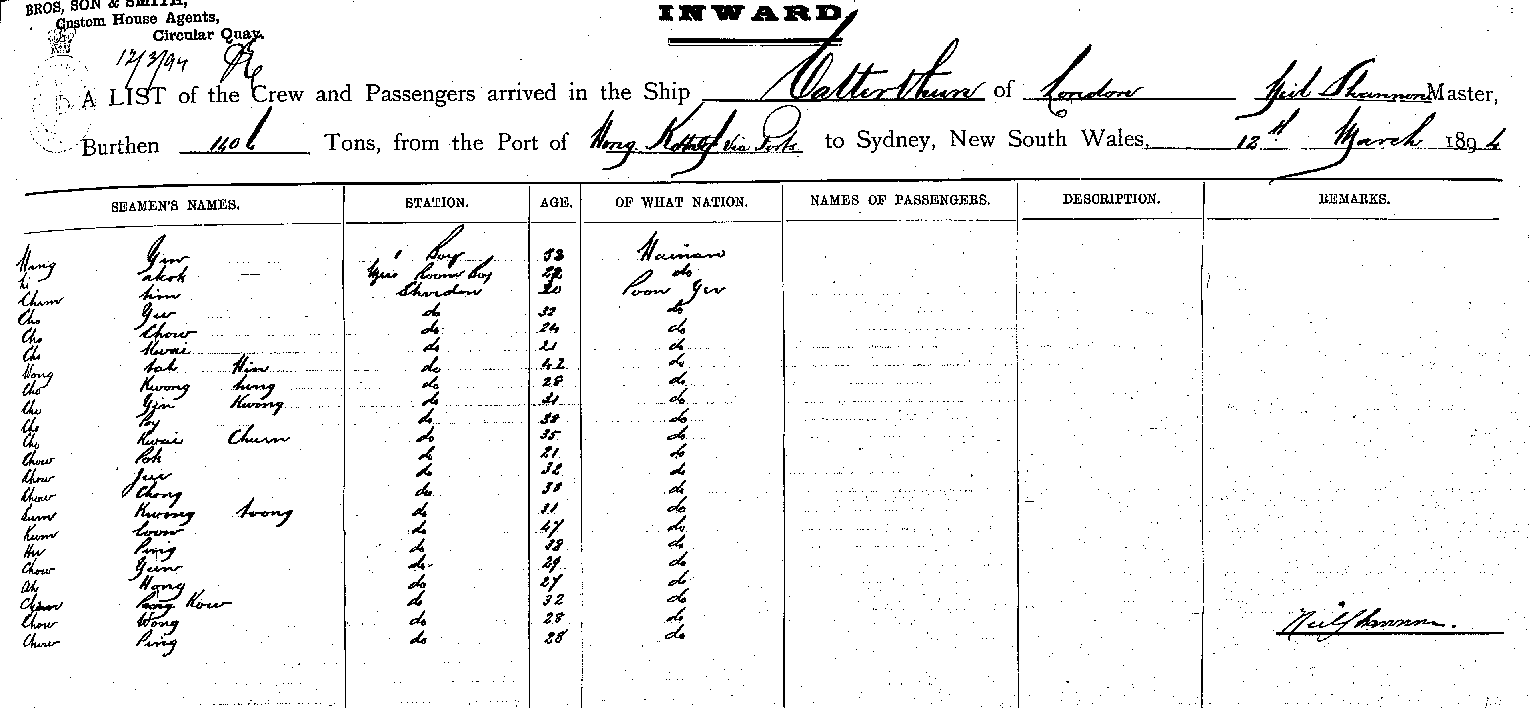 BROS, SON & SMITH,
Custom House Agents,
Circular Quay.
INWARD
12/3/94
A LIST of the Crew and Passengers arrived in the Ship Catterthun of London Neil Shannon Master,
Burthen 1406 Tons, from the Port of Hong Kong via Ports to Sydney, New South Wales, 12th March 1894
SEAMEN'S NAMES. STATION. AGE. OF WHAT NATION. NAMES OF PASSENGERS. DESCRIPTION. REMARKS.
Hing Gun " Boy 33 Hainan
Li akok — Mess Room Boy 22 do
Chum tim 20 Poon Yu
Cho Gu do 32 do
Cho Chow do 24 do
Cho Kwai do 21 do
Wong tak Hin do 42 do
Cho Kwong hing do 28 do
Cho Gin Kwong do 21 do
Cho Poy do 30 do
Cho Kwai Chum do 35 do
Chow Pok do 21 do
Chow Jui do 32 do
Chow Chong do 30 do
Sum Kwong toong do 31 do
Kum do 47 do
Hu Ping do 38 do
Chow Gun do 29 do
Ah Hong do 27 do
Chum Pong Kow do 32 do
Chow Wong do 28 do
Chow Ping do 28 do
Neil Shannon.